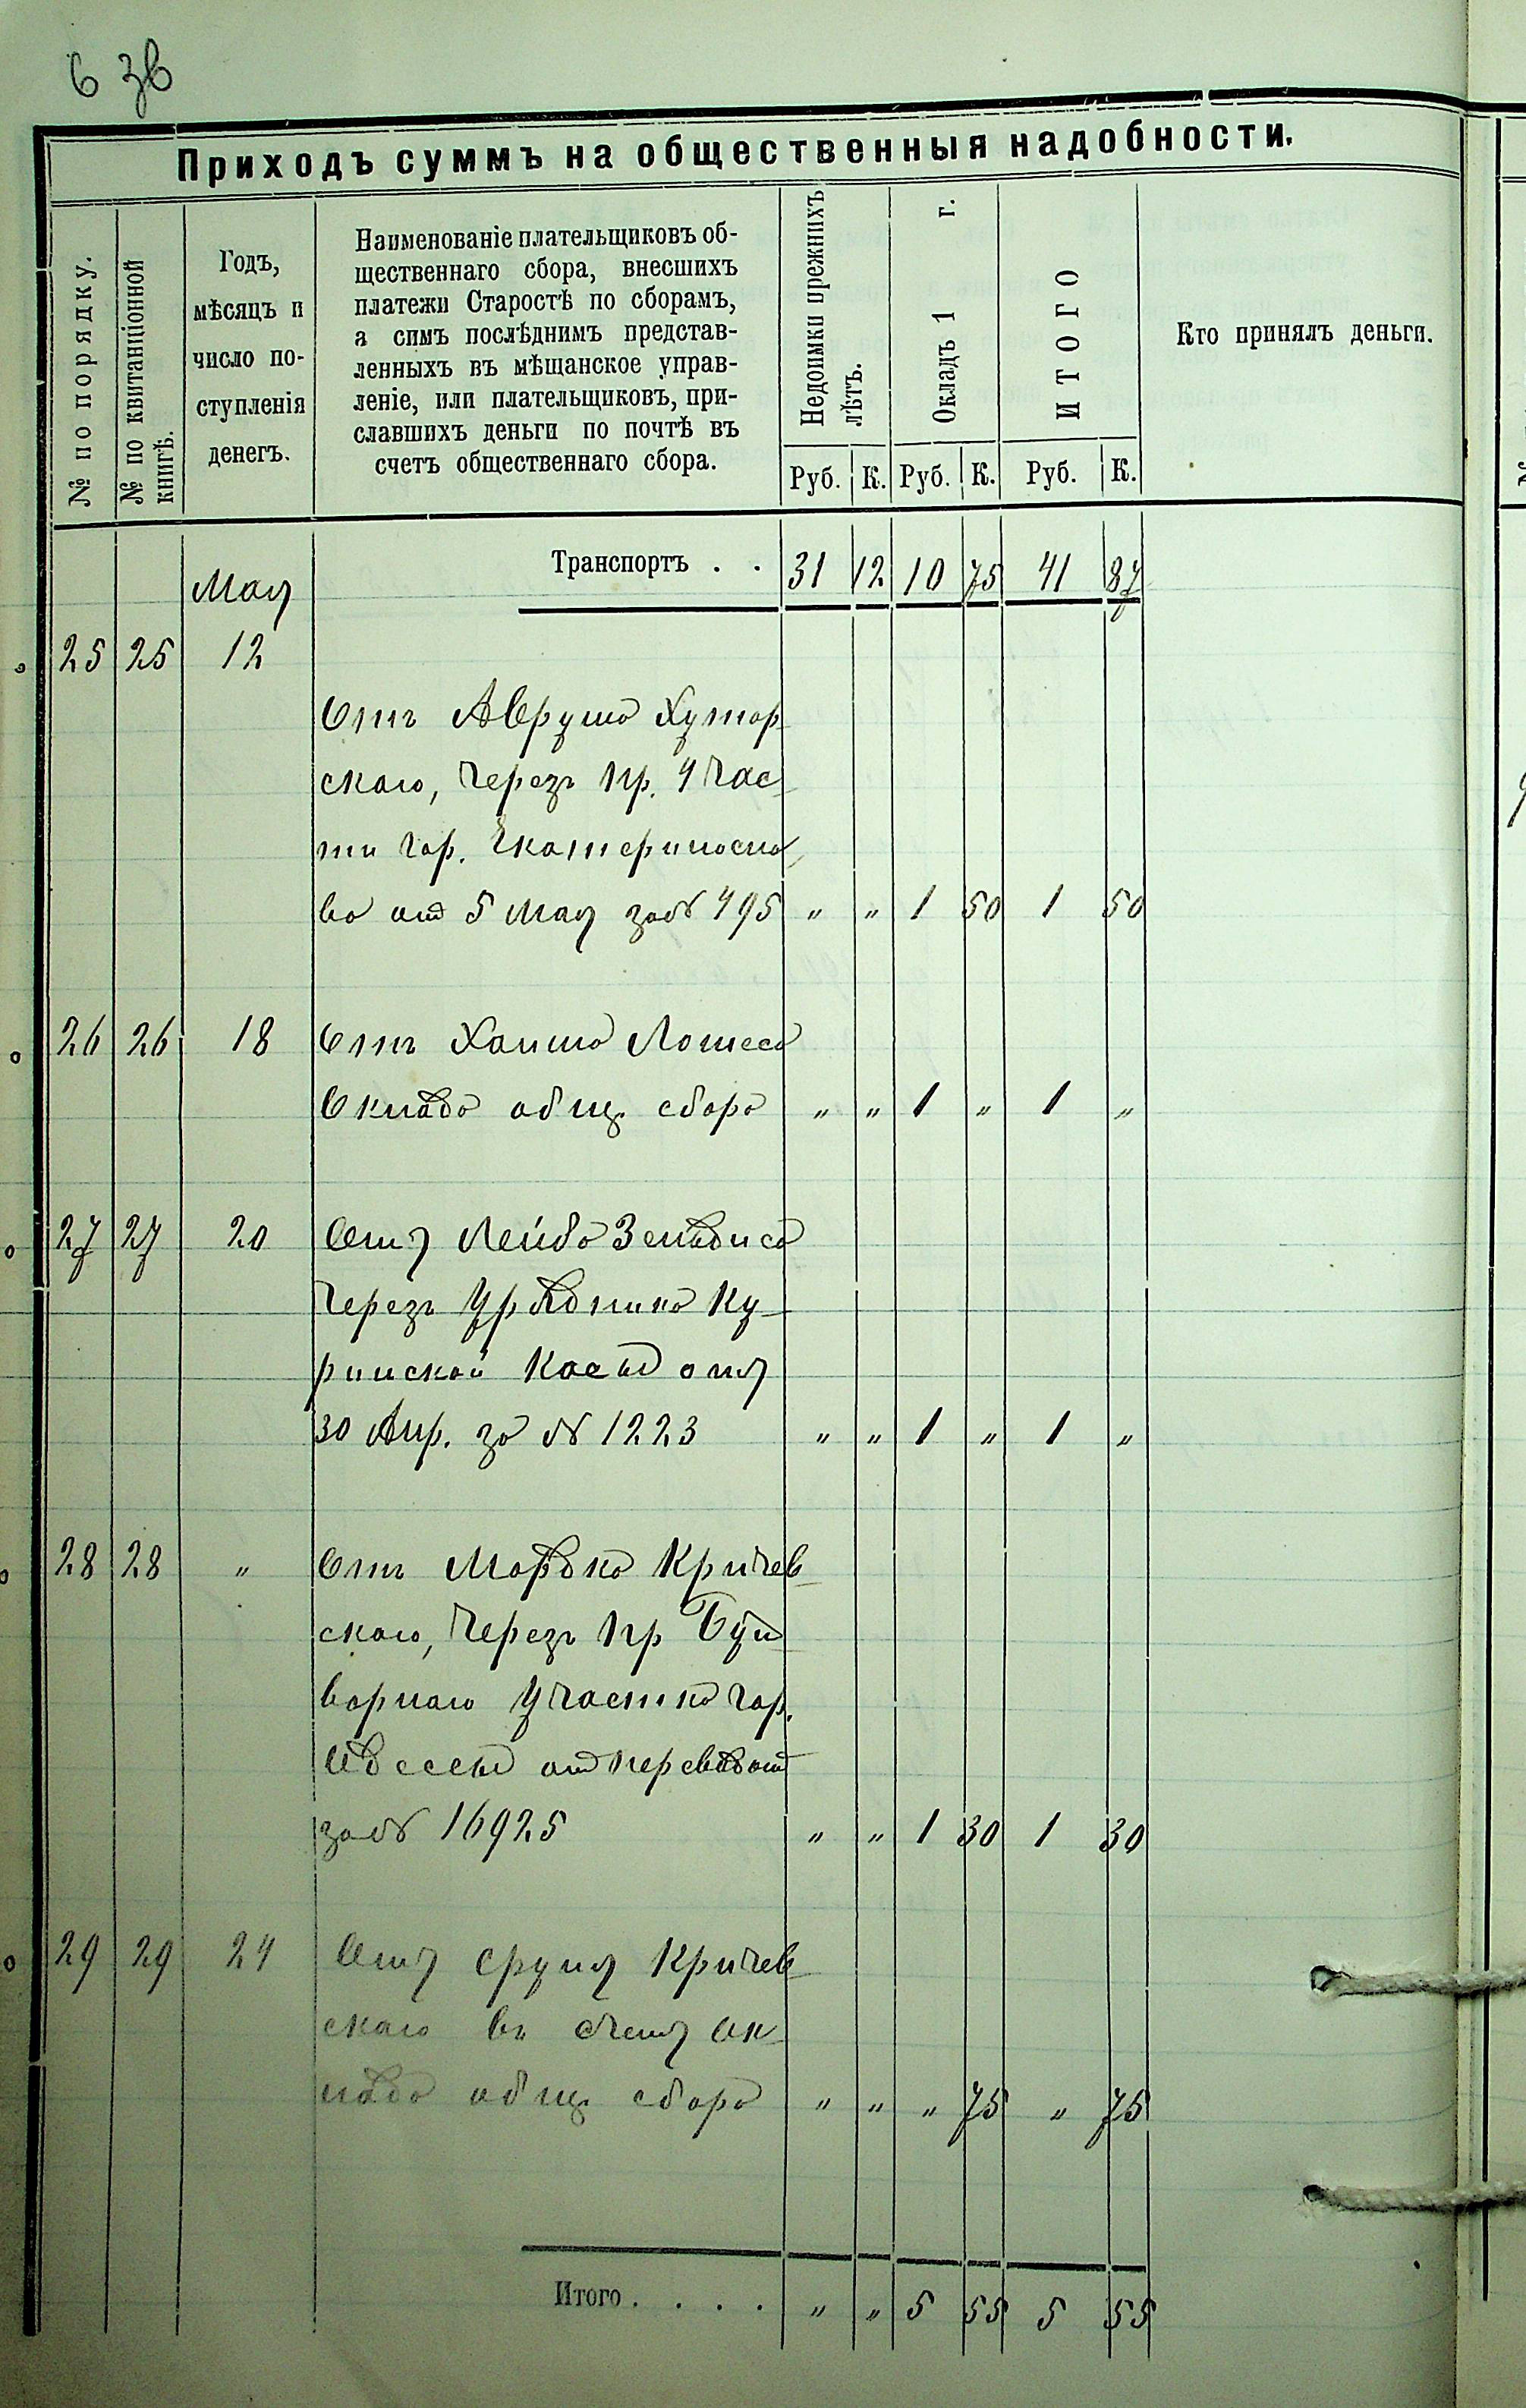 6 зв
Приходъ суммъ на общественныя надобности.
№ по порядку.
№ по квитанціонной книгѣ.
Годъ,
мѣсяцъ и
число по-
ступленія
денегъ.
Наименованіе плательщиковъ об-
щественнаго сбора, внесшихъ
платежи Старостѣ по сборамъ,
а симъ послѣднимъ представ-
ленныхъ въ мѣщанское управ-
леніе, или плательщиковъ, при-
славшихъ деньги по почтѣ въ
счетъ общественнаго сбора.
Недоимки прежнихъ
лѣтъ.
Окладъ 1 г.
ИТОГО
Кто принялъ деньги.
Руб. К. Руб. К. Руб. К.
Транспортъ . . 31 12 10 75 41 87
Мая
25 25 12
Отъ Аврума Хутор
скаго, Через Пр. 4 Час
ти Гор. Екатериносла
ва от 5 Мая за № 495 " " 1 50 1 50
26 26 18 Отъ Хаима
Оклада общ. сбора " " 1 " 1 "
27 27 20 Отъ Лейба
Черезъ Урядника Ку
ринской Косы отъ
30 Апр. за № 1223 " " 1 " 1 "
28 28 " Отъ Мордка Кричев
скаго, Черезъ Пр Буль
варнаго Участка Гор.
Одессы от
за № 16925 " " 1 30 1 30
29 29 24 Отъ Сруля Кричев
скаго въ счетъ Ок
лада общ. сбора " " " 75 " 75
Итого . . . . " " 5 55 5 55